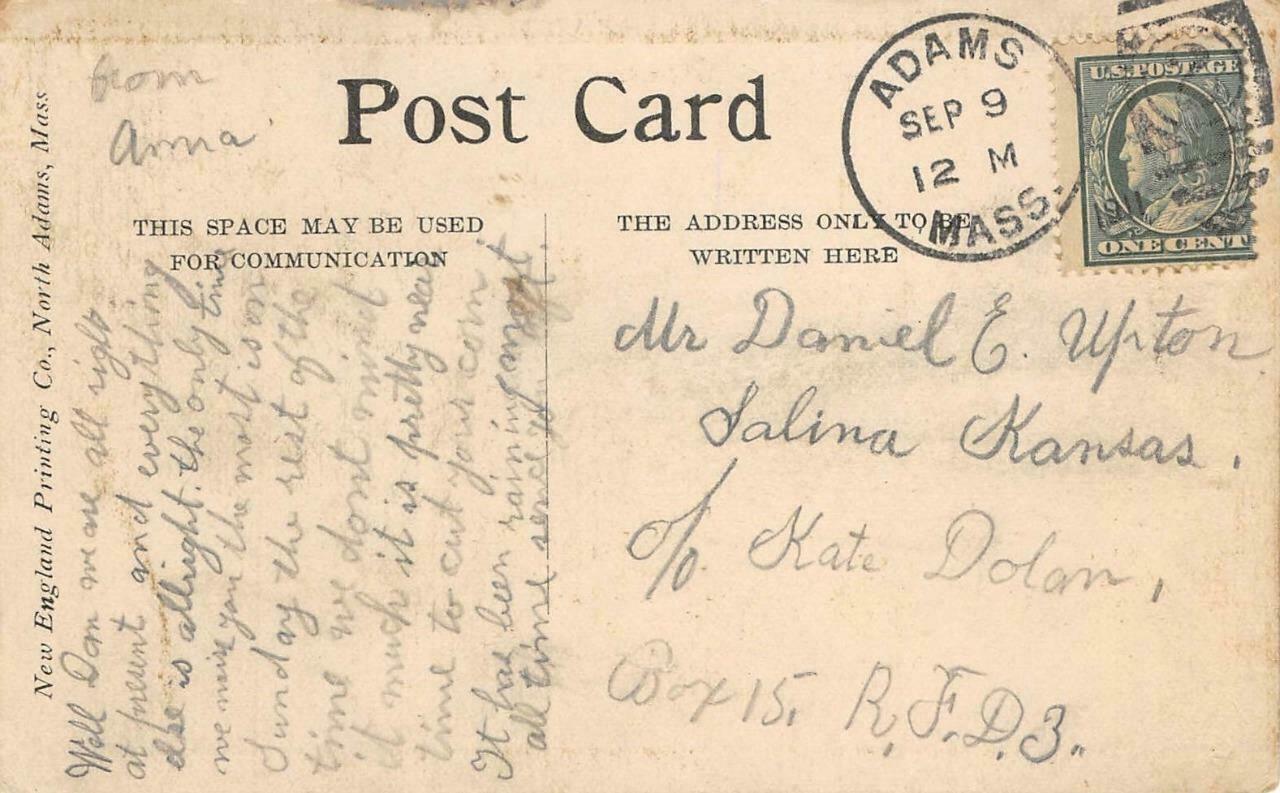 New England Printing Co., North Adams, Mass
from
Anna
Post Card
THIS SPACE MAY BE USED
FOR COMMUNICATION
THE ADDRESS ONLY TO BE
WRITTEN HERE
ADAMS
SEP 9
12 M
1911
MASS.
U.S. POSTAGE
ONE CENT
Well Dan we are all right
at present and everything
else is allright. the only time
we miss you the most is on
Sunday the rest of the
time we dont mind
it much it is pretty near
time to cut your corn
It has been raining
all time since
Mr Daniel E. Upton
Salina Kansas.
c/o Kate Dolan,
Box 15, R.F.D. 3.